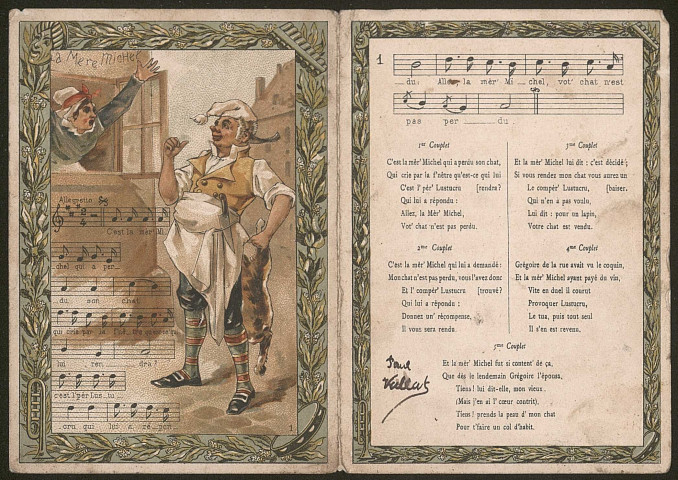 La Mère Michel
Allegretto
C'est la mèr' Mi_
_chel qui a per_
_du son chat
qui crie par la f'nêtr' qu'est-c' qui
lui ren dra?
c'est l'pèr' Lus_tu_
_cru qui lui a répon
1
1
_du: Allez la mèr' Mi_chel, vot' chat n'est
pas per_du.
1er Couplet
C'est la mèr' Michel qui a perdu son chat,
Qui crie par la f'nêtre qu'est-ce qui lui
C'est l' pèr' Lustucru [rendra?
Qui lui a répondu:
Allez, la Mèr' Michel,
Vot' chat n'est pas perdu.
2me Couplet
C'est la mèr' Michel qui lui a demandé:
Mon chat n'est pas perdu, vous l'avez donc
Et l' compèr' Lustucru [trouvé?
Qui lui a répondu:
Donnez un' récompense,
Il vous sera rendu.
3me Couplet
Et la mèr' Michel lui dit: c'est décidé;
Si vous rendez mon chat vous aurez un
Le compèr' Lustucru, [baiser.
Qui n'en a pas voulu,
Lui dit: pour un lapin,
Votre chat est vendu.
4me Couplet
Grégoire de la rue avait vu le coquin,
Et la mèr' Michel ayant payé du vin,
Vite en duel il courut
Provoquer Lustucru,
Le tua, puis tout seul
Il s'en est revenu.
5me Couplet
Et la mèr' Michel fut si content' de ça,
Que dès le lendemain Grégoire l'épousa,
Tiens! lui dit-elle, mon vieux.
(Mais j'en ai l' cœur contrit),
Tiens! prends la peau d' mon chat
Pour t'faire un col d'habit.
Paul
Vaillat